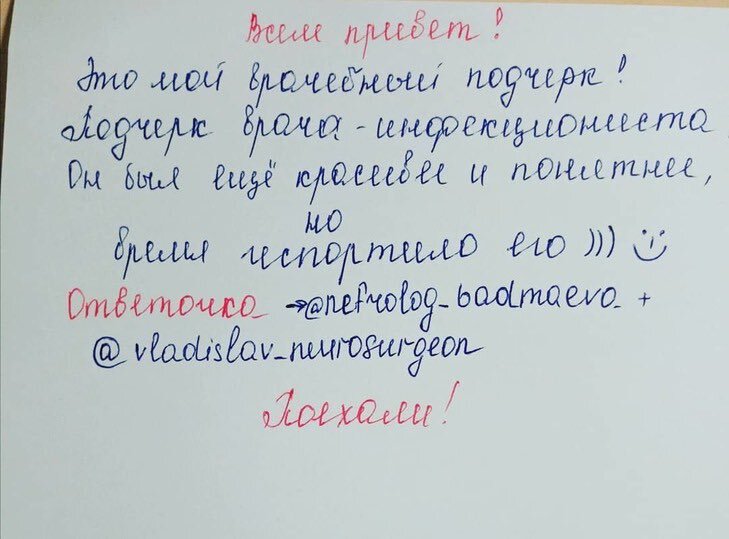 Всем привет!
Это мой врачебный подчерк!
Подчерк врача-инфекциониста
Он был ещё красивее и понятнее,
но
время испортило его )))
Ответочка → @nefrolog_badmaeva_ +
@vladislav_neurosurgeon
Поехали!